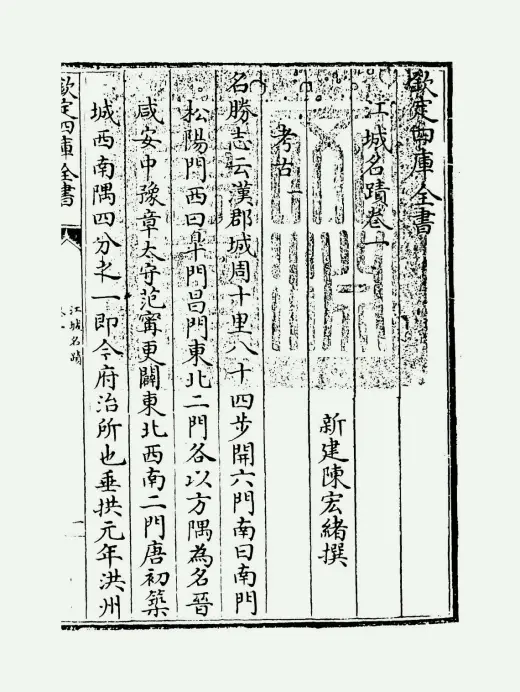 欽定四庫全書
江城名蹟卷一
新建陳宏緒撰
考古一
名勝志云漢郡城周十里八十四步開六門南曰南門
松陽門西曰臯門昌門東北二門各以方隅為名晉
咸安中豫章太守范甯更闢東北西南二門唐初築
城西南隅四分之一即今府治所也垂拱元年洪州
欽定四庫全書
江城名蹟